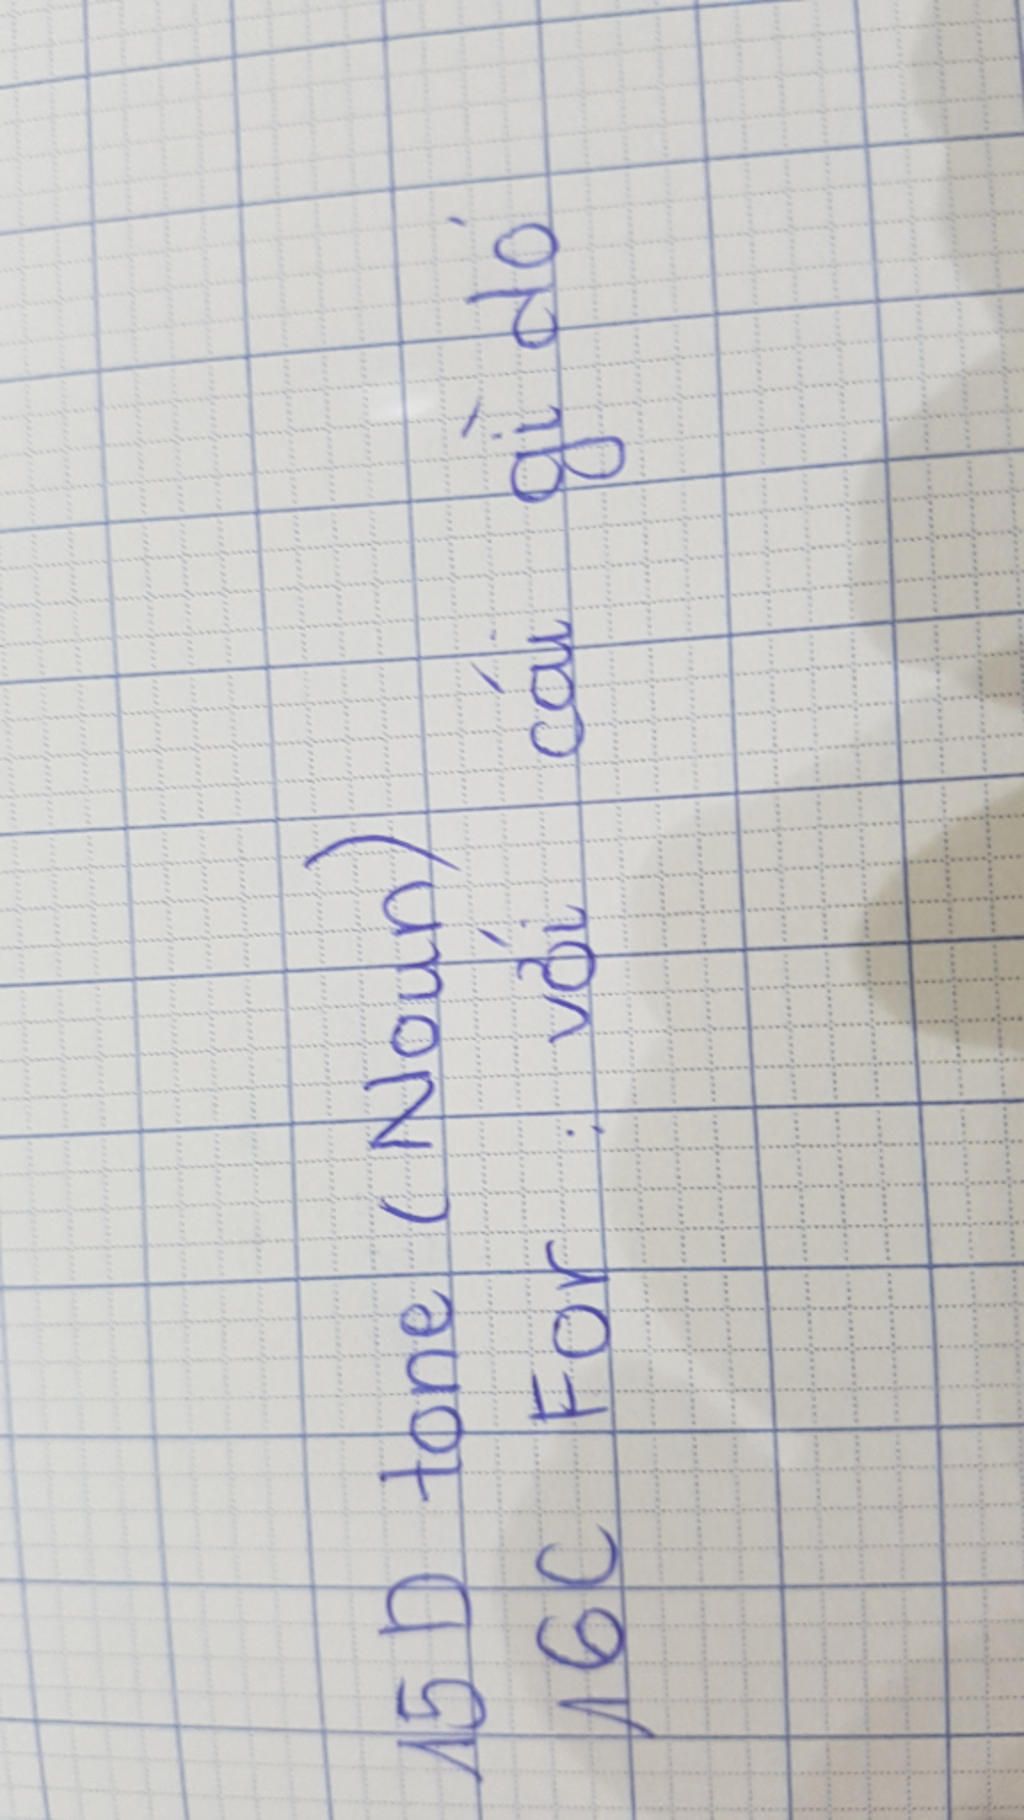 15D tone (Noun)
16C For : với cái gì dó